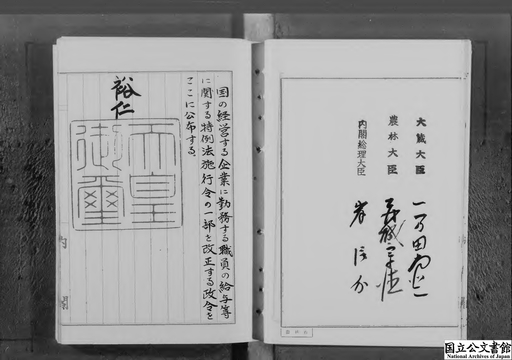 国の経営する企業に勤務する職員の給与等
に関する特例法施行令の一部を改正する政令を
ここに公布する。
裕仁
天皇
御璽
大蔵大臣
一万田尚登
農林大臣
内閣総理大臣
岸信介
国立公文書館
National Archives of Japan